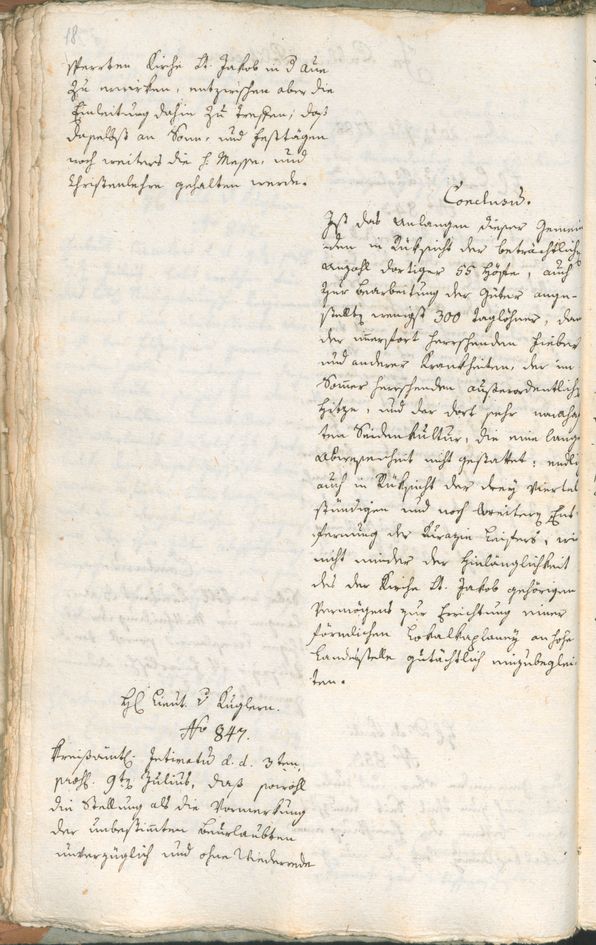 18
sperrten Kirche St. Jakob in d Aue
zu erwirken, entzwischen aber die
Einleitung dahin zu treffen, daß
daselbst an Sonn- und Festtägen
noch weiters die h Messe, und
Christenlehre gehalten werde.
Conclusū.
Ist das anlangen dieser Gemein
den in Rüksicht der beträchtlich
Anzahl dortiger 55 Höfe, auch
zur bearbeitung der Güter ange-
stellt wenigst 300 taglöhner, dan
der immerfort herrschenden Fieber
und anderer Krankheiten, der im
Somer herrschenden außerordentlich
Hitze, und der dort sehr namhaf
ten Seidenkultur, die eine lange
Abwesenheit nicht gestattet; endli
auch in Rüksicht der drey viertel
stündigen und noch weitern Ent-
fernung der Kurazie Leifers, wi
nicht minder der Hinlänglichkeit
des der Kirche St. Jakob gehörigen
Vermögens zur Errichtung einer
förmlichen Lokalkaplaney an hohe
Landesstelle gutächtlich einzubeglei-
ten.
H Lieut. v Kuglern.
No 847.
Kreisämtl. Intimatū d. d. 3ten,
präs. 9t Julius, daß sowohl
die Stellung als die Vormerkung
der unbestimten Beurlaubten
unverzüglich und ohne Wiederrede